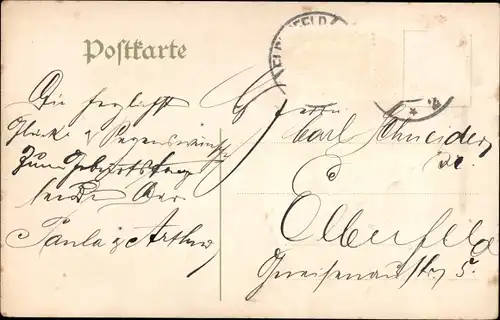 Postkarte
ELBERFELD
Die herzlichst
Glück & Segenswünsche
Zum Geburtstage
sendet Dir
Paula & Arthur
Herrn
Carl Schneider
Elberfeld
Gneisenaustr 5.